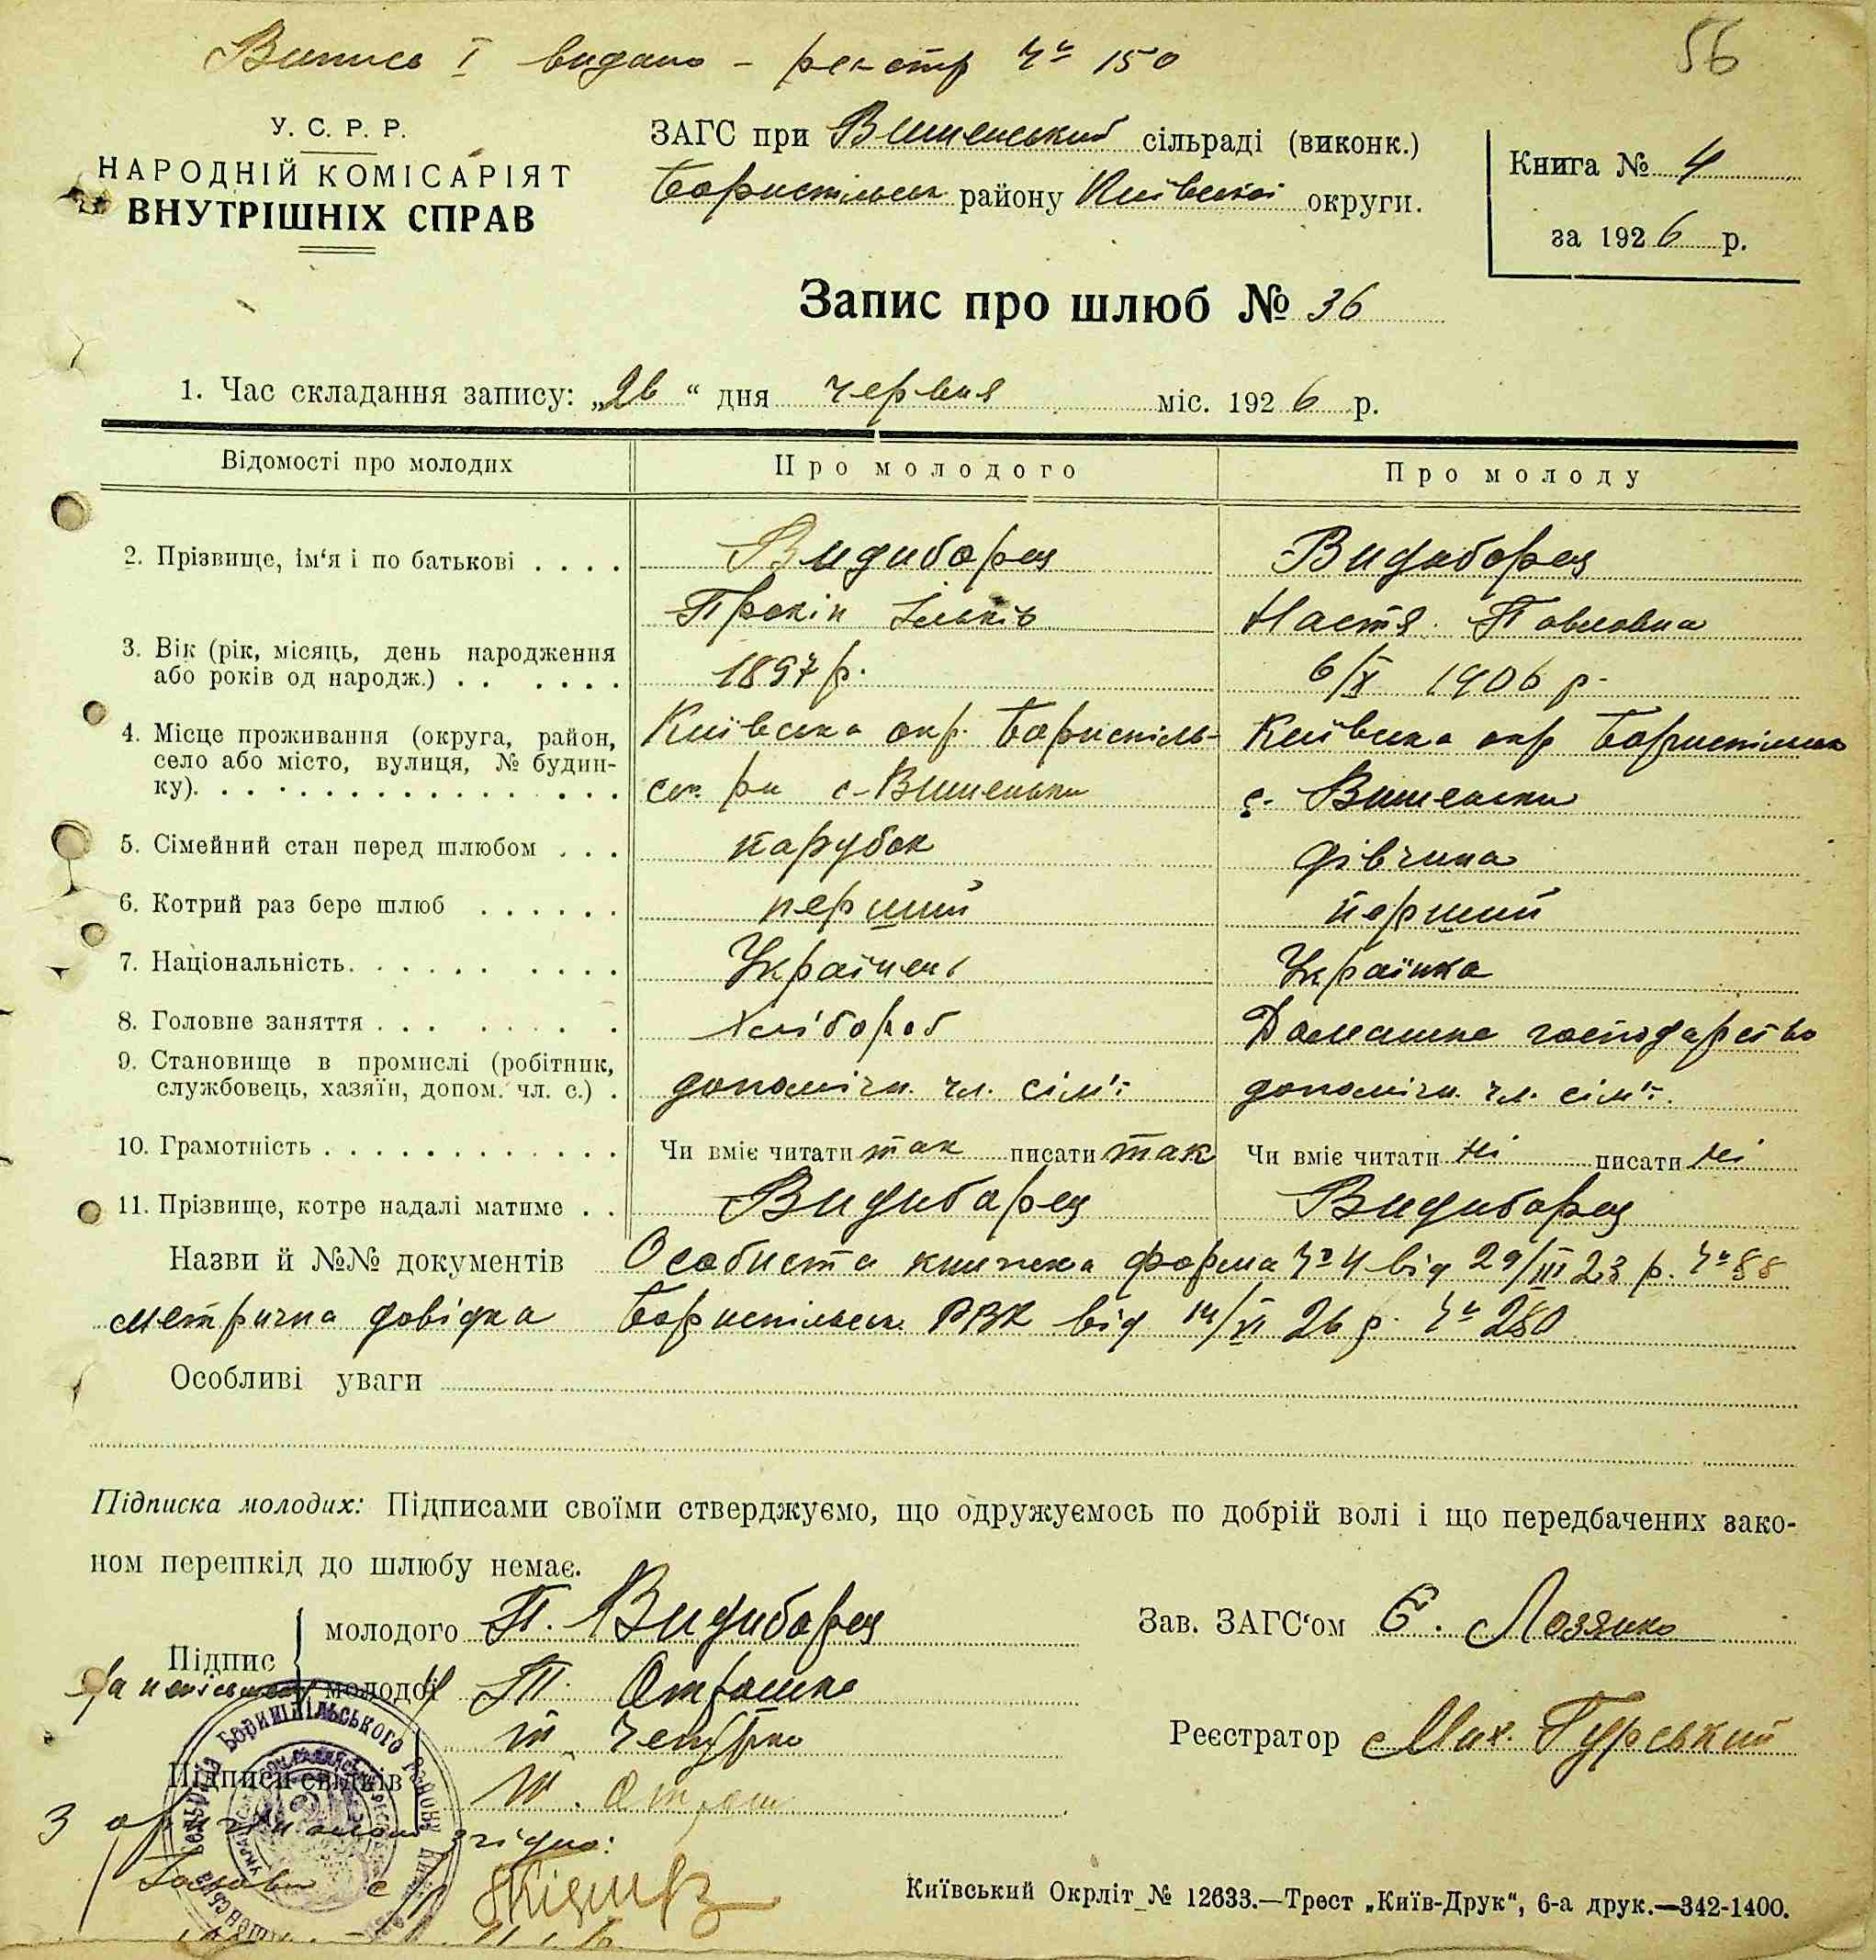 Випись I видано – реєстр № 150
56
У. С. Р. Р.
НАРОДНІЙ КОМІСАРІЯТ
ВНУТРІШНІХ СПРАВ
ЗАГС при Вишенській сільраді (виконк.)
Бориспільськ району Київської округи.
Книга № 4
за 1926 р.
Запис про шлюб № 36
1. Час складання запису: „26“ дня червня міс. 1926 р.
Відомості про молодих Про молодого Про молоду
2. Прізвище, ім‘я і по батькові . . . . Видиборец Видиборец
Прокіп Ільків Настя Павловна
3. Вік (рік, місяць, день народження
або років од народж.) . . . . . . 1897 р. 6/X 1906 р.
4. Місце проживання (округа, район, Київська окр. Бориспіль- Київська окр Бориспільськ
село або місто, вулиця, № будин-
ку). . . . . . . . . . . . . . . . . ськ. рн с-Вишеньки с. Вишеньки
5. Сімейний стан перед шлюбом . . . парубок дівчина
6. Котрий раз бере шлюб . . . . . . перший перший
7. Національність. . . . . . . . . . Українець Українка
8. Головне заняття . . . . . . . . Хлібороб Домашнє господарство
9. Становище в промислі (робітник,
службовець, хазяїн, допом. чл. с.) . допоміжн. чл. сім'ї допоміжн. чл. сім'ї.
10. Грамотність . . . . . . . . . . . . . Чи вміє читати так писати так Чи вміє читати ні писати ні
11. Прізвище, котре надалі матиме . . Видиборец Видиборец
Назви й №№ документів Особиста книжка форма № 4 від 29/III 23 р. № 88
метрична довідка Бориспільськ. РВК від 14/VI 26 р. № 280
Особливі уваги
Підписка молодих: Підписами своїми стверджуємо, що одружуємось по добрій волі і що передбачених зако-
ном перешкід до шлюбу немає.
Підпис
молодого П. Видиборец
Зав. ЗАГС‘ом Є. Лозянко
молодої П.
Реєстратор Мих. Гурський
Підписи свідків
З оригіналом згідно:
Голова с/р
Київський Окрліт № 12633.—Трест „Київ-Друк“, 6-а друк.—342-1400.